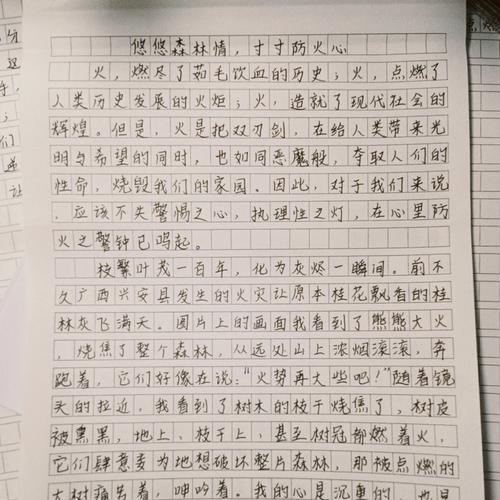 悠悠森林情，寸寸防火心
火，燃尽了茹毛饮血的历史；火，点燃了
人类历史发展的火炬；火，造就了现代社会的
辉煌。但是，火是把双刃剑，在给人类带来光
明与希望的同时，也如同恶魔般，夺取人们的
性命，烧毁我们的家园。因此，对于我们来说
，应该不失警惕之心，执理性之灯，在心里防
火之警钟已鸣起。
枝繁叶茂一百年，化为灰烬一瞬间。前不
久广西兴安县发生的火灾让原本桂花飘香的桂
林灰飞满天。图片上的画面我看到了熊熊大火
，烧焦了整个森林，从远处山上浓烟滚滚，奔
跑着，它们好像在说："火势再大些吧！"随着镜
头的拉近，我看到了树木的枝干烧焦了，树皮
被熏黑，地上、枝干上、甚至树冠都燃着火，
它们肆意妄为地想破坏整片森林，那被点燃的
大树痛苦着，呻吟着。我的心是沉重的，也是